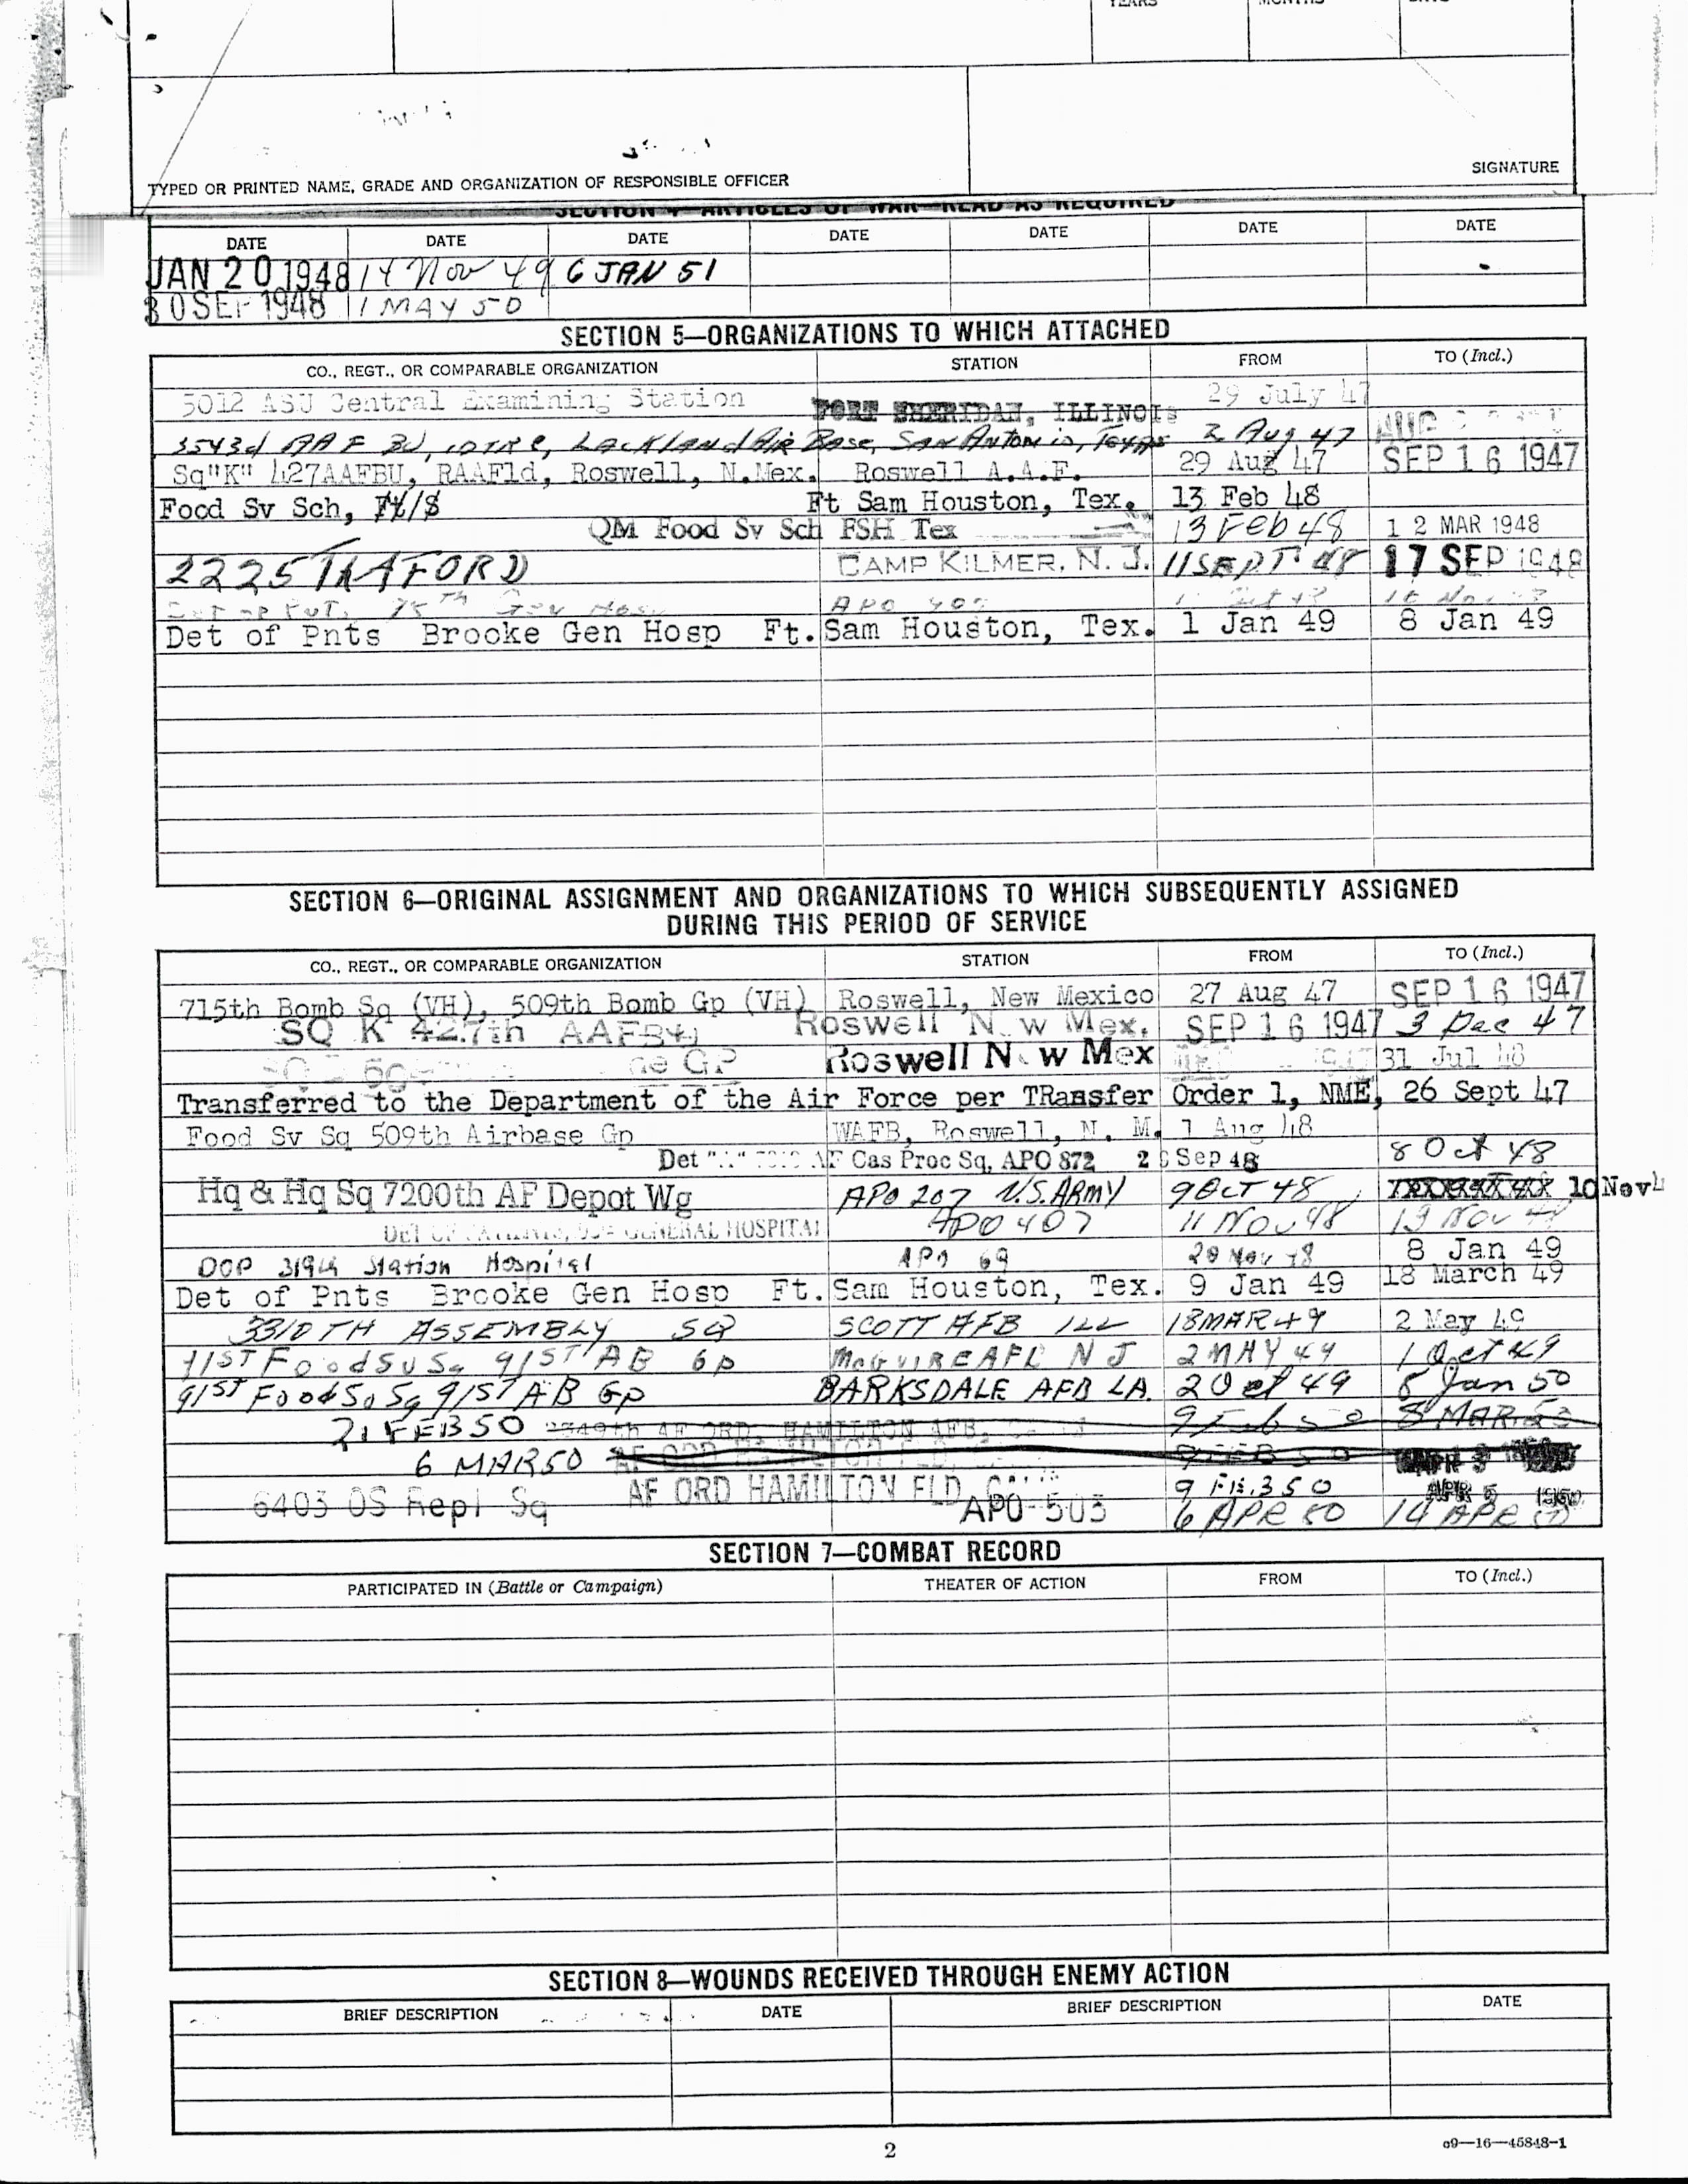 YEARS MONTHS
TYPED OR PRINTED NAME, GRADE AND ORGANIZATION OF RESPONSIBLE OFFICER SIGNATURE
SECTION 4—ARTICLES OF WAR—READ AS REQUIRED
DATE DATE DATE DATE DATE DATE DATE
JAN 20 1948 14 Nov 49 6 JAN 51
30 SEP 1948 1 MAY 50
SECTION 5—ORGANIZATIONS TO WHICH ATTACHED
CO., REGT., OR COMPARABLE ORGANIZATION STATION FROM TO (Incl.)
5012 ASU Central Examining Station FORT SHERIDAN, ILLINOIS 29 July 47 AUG
3543d AAF BU, Lackland Air Base, San Antonio, Texas 2 Aug 47
Sq"K" 427AAFBU, RAAFld, Roswell, N.Mex. Roswell A.A.F. 29 Aug 47 SEP 16 1947
Food Sv Sch, Ft Sam Houston, Tex. 13 Feb 48
QM Food Sv Sch FSH Tex 13 Feb 48 12 MAR 1948
2225 CAMP KILMER, N. J. 11 SEPT 48 17 SEP 1948
APO
Det of Pnts Brooke Gen Hosp Ft. Sam Houston, Tex. 1 Jan 49 8 Jan 49
SECTION 6—ORIGINAL ASSIGNMENT AND ORGANIZATIONS TO WHICH SUBSEQUENTLY ASSIGNED
DURING THIS PERIOD OF SERVICE
CO., REGT., OR COMPARABLE ORGANIZATION STATION FROM TO (Incl.)
715th Bomb Sq (VH), 509th Bomb Gp (VH) Roswell, New Mexico 27 Aug 47 SEP 16 1947
SQ K 427th AAFBU Roswell N w Mex. SEP 16 1947 3 Dec 47
GP Roswell N w Mex 31 Jul 48
Transferred to the Department of the Air Force per TRansfer Order 1, NME, 26 Sept 47
Food Sv Sq 509th Airbase Gp WAFB, Roswell, N. M. 1 Aug 48
Det AF Cas Proc Sq, APO 872 Sep 48 8 Oct 48
Hq & Hq Sq 7200th AF Depot Wg APO 207 U.S. ARMY 9 OCT 48 10 Nov
GENERAL HOSPITAL APO 407 11 Nov 48 19 Nov
DOP 319th Station Hospital APO 69 20 Nov 48 8 Jan 49
Det of Pnts Brooke Gen Hosp Ft. Sam Houston, Tex. 9 Jan 49 18 March 49
3310TH ASSEMBLY SQ SCOTT AFB ILL 18 MAR 49 2 May 49
91ST Food Sv Sq 91ST AB Gp McGuire AFB N J 2 MAY 49 1 Oct 49
91ST Food Sv Sq 91ST AB Gp BARKSDALE AFB LA. 2 Oct 49 8 Jan 50
21 FEB 50 AF ORD, HAMILTON AFB, 9 Feb 50 8 MAR 50
6 MAR 50 AF ORD 9 FEB 50
AF ORD HAMILTON FLD, CALIF 9 FEB 50 APR 5 1950
6403 OS Repl Sq APO-503 6 APR 50 14 APR
SECTION 7—COMBAT RECORD
PARTICIPATED IN (Battle or Campaign) THEATER OF ACTION FROM TO (Incl.)
SECTION 8—WOUNDS RECEIVED THROUGH ENEMY ACTION
BRIEF DESCRIPTION DATE BRIEF DESCRIPTION DATE
2
o9—16—45848-1